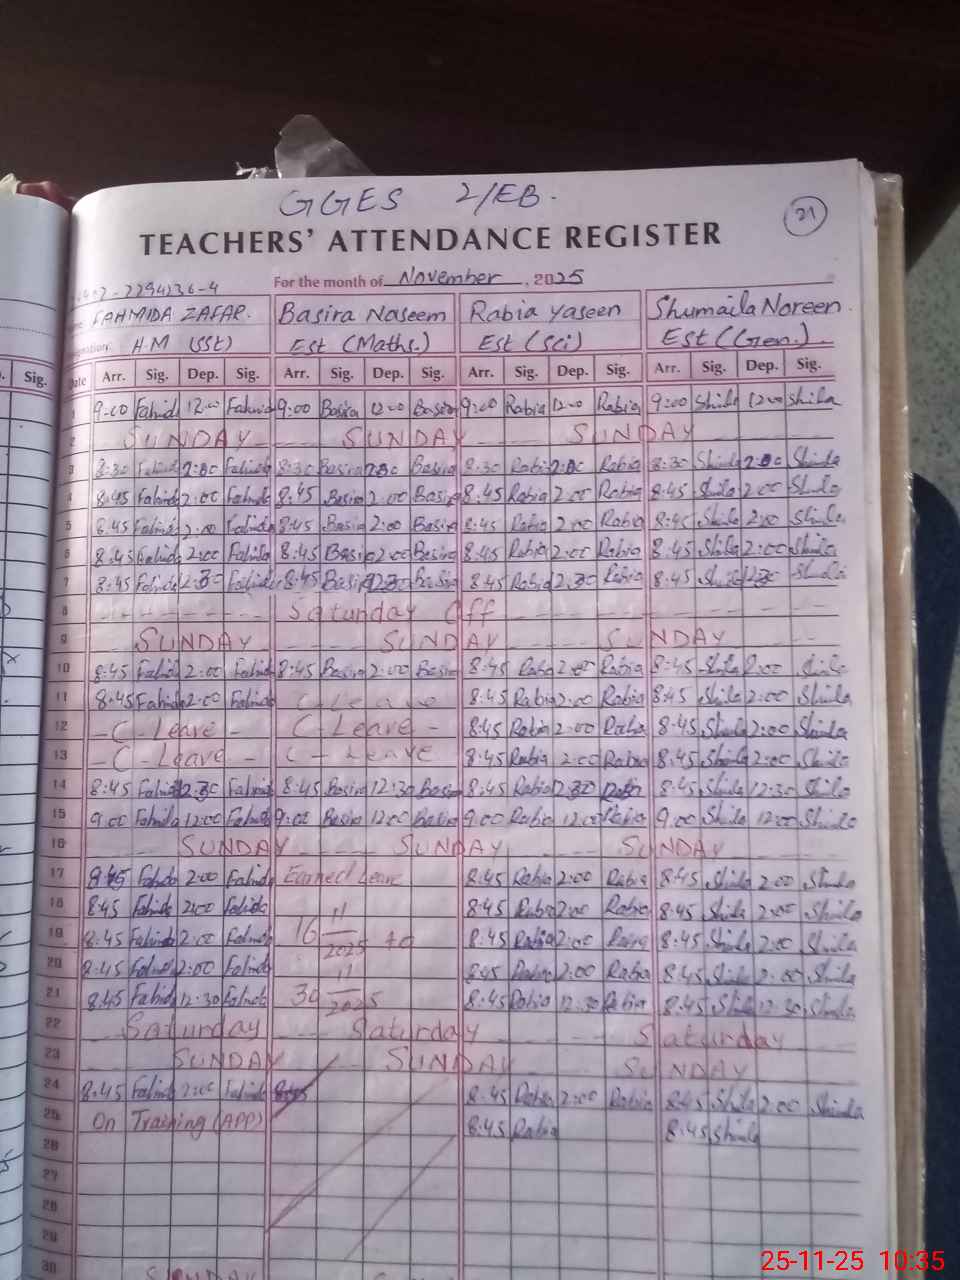 GGES 2/EB.
21
TEACHERS' ATTENDANCE REGISTER
For the month of November, 2025
FAHMIDA ZAFAR. Basira Naseem Rabia yaseen Shumaila Noreen
H.M (SSt) Est (Maths.) Est (Sci) Est (Gen.)
Sig. Date Arr. Sig. Dep. Sig. Arr. Sig. Dep. Sig. Arr. Sig. Dep. Sig. Arr. Sig. Dep. Sig.
1 9:00 Fahmid 12:00 Fahmid 9:00 Basira 12:00 Basira 9:00 Rabia 12:00 Rabia 9:00 Shila 12:00 Shila
2 SUNDAY SUNDAY SUNDAY
3 8:30 Fahmid 2:00 Fahmida 8:30 Basira 2:00 Basira 8:30 Rabia 2:00 Rabia 8:30 Shila 2:00 Shila
4 8:45 Fahmid 2:00 Fahmida 8:45 Basira 2:00 Basira 8:45 Rabia 2:00 Rabia 8:45 Shila 2:00 Shila
5 8:45 Fahmid 2:00 Fahmida 8:45 Basira 2:00 Basira 8:45 Rabia 2:00 Rabia 8:45 Shila 2:00 Shila
6 8:45 Fahmida 2:00 Fahmida 8:45 Basira 2:00 Basira 8:45 Rabia 2:00 Rabia 8:45 Shila 2:00 Shila
7 8:45 Fahmida 2:30 Fahmida 8:45 Basira 12:30 Basira 8:45 Rabia 2:30 Rabia 8:45 Shila 12:30 Shila
8 Saturday Off
9 SUNDAY SUNDAY SUNDAY
10 8:45 Fahmida 2:00 Fahmida 8:45 Basira 2:00 Basira 8:45 Rabia 2:00 Rabia 8:45 Shila 2:00 Shila
11 8:45 Fahmida 2:00 Fahmida C-Leave 8:45 Rabia 2:00 Rabia 8:45 Shila 2:00 Shila
12 - C - Leave - C-Leave - 8:45 Rabia 2:00 Rabia 8:45 Shila 2:00 Shila
13 - C - Leave - C - Leave 8:45 Rabia 2:00 Rabia 8:45 Shila 2:00 Shila
14 8:45 Fahmida 12:30 Fahmida 8:45 Basira 12:30 Basira 8:45 Rabia 12:30 Rabia 8:45 Shila 12:30 Shila
15 9:00 Fahmida 12:00 Fahmida 9:00 Basira 12:00 Basira 9:00 Rabia 12:00 Rabia 9:00 Shila 12:00 Shila
16 SUNDAY SUNDAY SUNDAY
17 8:45 Fahmida 2:00 Fahmida Earned Leave 8:45 Rabia 2:00 Rabia 8:45 Shila 2:00 Shila
18 8:45 Fahmida 2:00 Fahmida 11 8:45 Rabia 2:00 Rabia 8:45 Shila 2:00 Shila
19 8:45 Fahmida 2:00 Fahmida 16 2025 to 8:45 Rabia 2:00 Rabia 8:45 Shila 2:00 Shila
20 8:45 Fahmida 2:00 Fahmida 11 8:45 Rabia 2:00 Rabia 8:45 Shila 2:00 Shila
21 8:45 Fahmida 12:30 Fahmida 30 2025 8:45 Rabia 12:30 Rabia 8:45 Shila 12:30 Shila
22 Saturday Saturday Saturday
23 SUNDAY SUNDAY SUNDAY
24 8:45 Fahmida 2:00 Fahmida 8:45 8:45 Rabia 2:00 Rabia 8:45 Shila 2:00 Shila
25 On Training (APP) 8:45 Rabia 8:45 Shila
26
27
28
29
30 SUNDAY
25-11-25 10:35